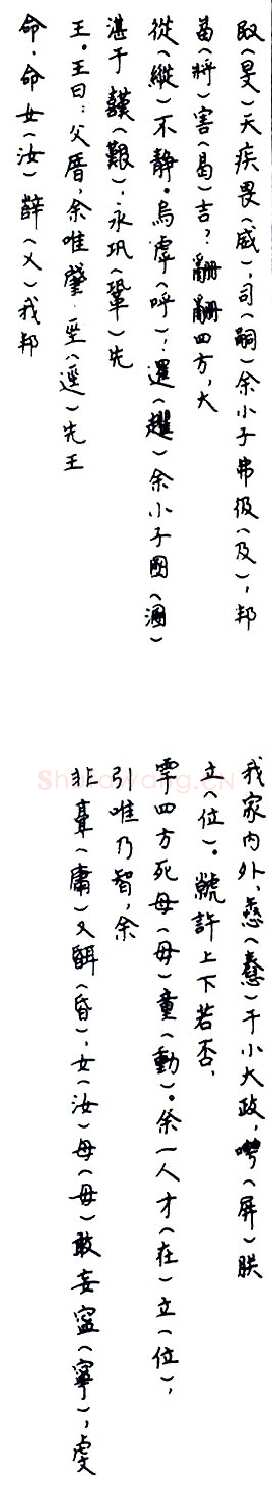 敃(旻)天疾畏(威),司(嗣)余小子弗彶(及),邦
𤔲(將)害(曷)吉?䎽䎽四方,大
從(縱)不靜。烏虖(呼)!趯余小子圂(溷)
湛于囏(艱),永巩(鞏)先
王。王曰:父㕌,余唯肇巠(逕)先王
命,命女(汝)辥(乂)我邦
我家內外,惷(憃)于小大政,甹(屏)朕
立(位)。虩許上下若否,
雩四方死母(毋)童(動)。余一人才(在)立(位),
引唯乃智,余
非𩫏(庸)又䎽(昏),女(汝)母(毋)敢妄寍(寧),虔